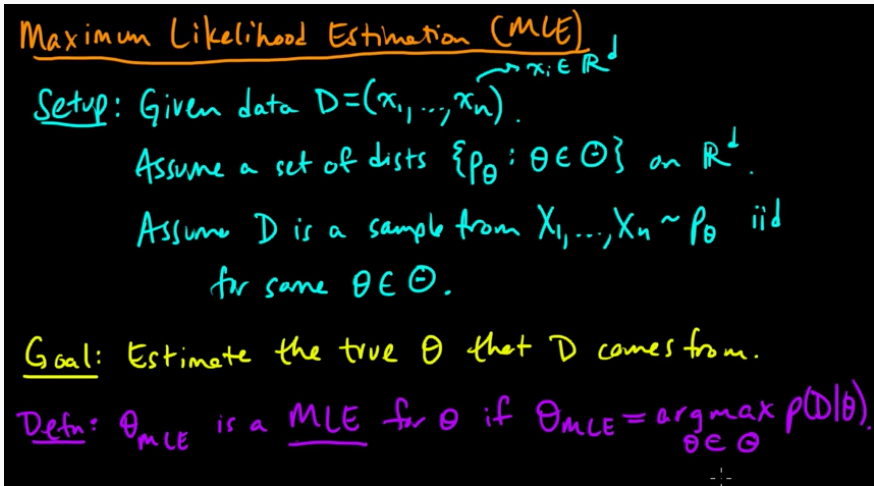 Maximum Likelihood Estimation (MLE)
xᵢ ∈ ℝᵈ
Setup: Given data D=(x₁,...,xₙ).
Assume a set of dists {p_θ : θ ∈ Θ} on ℝᵈ.
Assume D is a sample from X₁,...,Xₙ ~ p_θ iid
for some θ ∈ Θ.
Goal: Estimate the true θ that D comes from.
Defn: θ_MLE is a MLE for θ if θ_MLE = argmax p(D|θ).
θ ∈ Θ